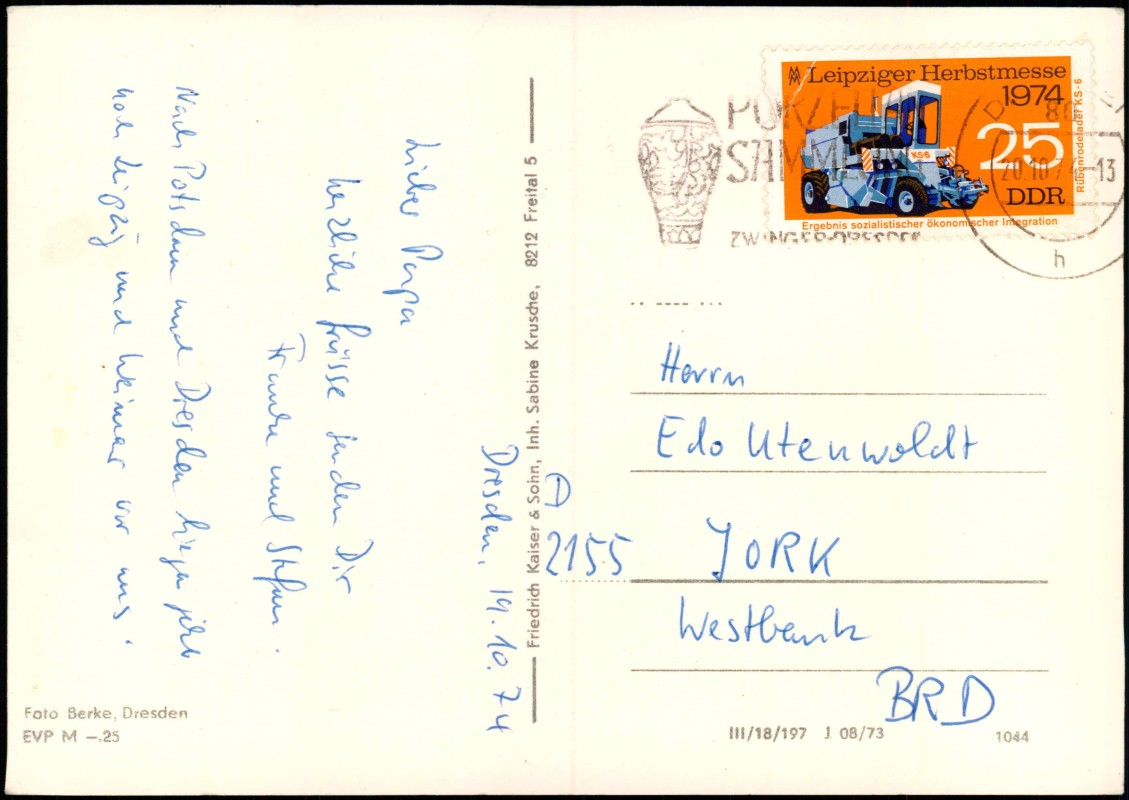 Dresden, 19.10.74
Lieber Papa
herzliche Grüsse senden Dir
Frauke und Stefan.
Nach Potsdam und Dresden liegen jetzt
noch Leipzig und Weimar vor uns.
Foto Berke, Dresden
EVP M –.25
Friedrich Kaiser & Sohn, Inh. Sabine Krusche, 8212 Freital 5
Leipziger Herbstmesse
1974
25
DDR
KS-6
Rübenrodelader KS-6
Ergebnis sozialistischer ökonomischer Integration
SAMMLUNG
ZWINGER-DRESDEN
20.10.74-13
h
Herrn
Edo Utenwoldt
D
2155 JORK
Westbank
BRD
III/18/197 J 08/73
1044